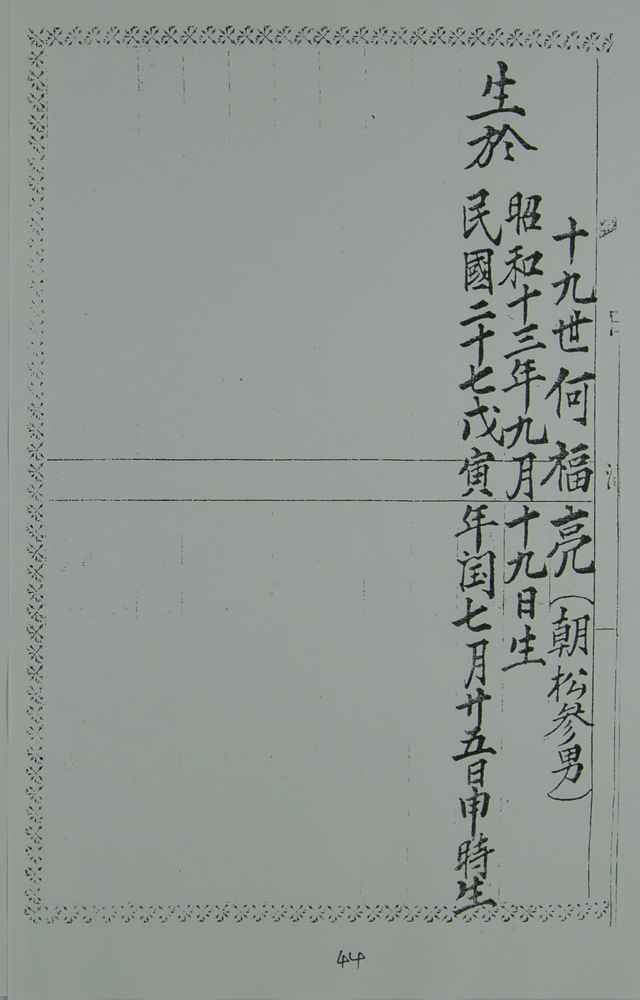 十九世何福亮（朝松參男）
昭和十三年九月十九日生
生於
民國二十七戊寅年閏七月廿五日申時生
44